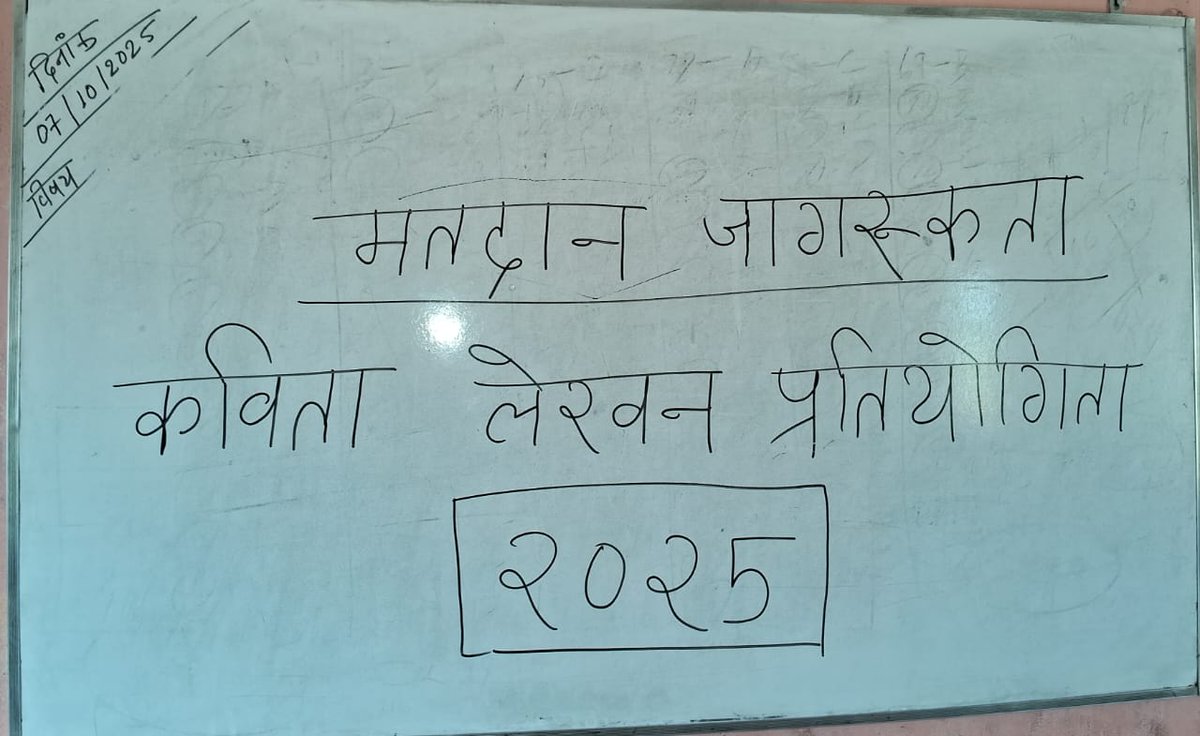 दिनाँक
07/10/2025
विषय
मतदान जागरूकता
कविता लेखन प्रतियोगिता
२०२५